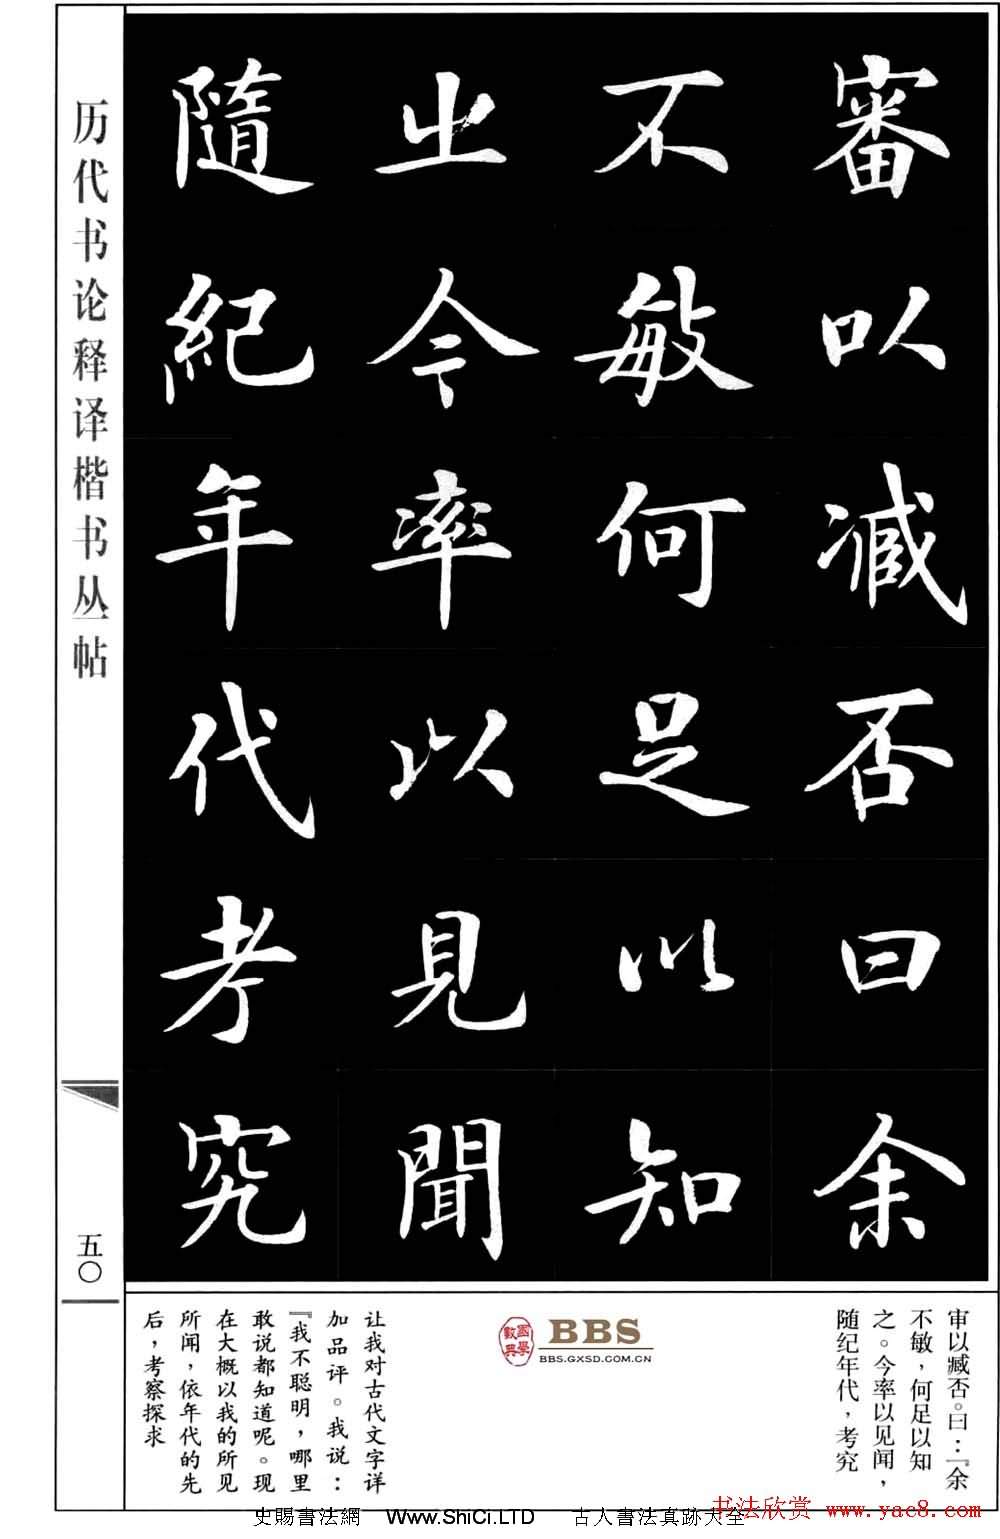 審以臧否曰余
不敏何足以知
之今率以見聞
隨紀年代考究
历代书论释译楷书丛帖
五〇
审以臧否。曰：『余
不敏，何足以知
之。今率以见闻，
随纪年代，考究
國學
數典
BBS
BBS.GXSD.COM.CN
让我对古代文字详
加品评。我说：
『我不聪明，哪里
敢说都知道呢。现
在大概以我的所见
所闻，依年代的先
后，考察探求
书法欣赏 www.yac8.com
史賜書法網 WWW.ShiCi.LTD 古人書法真跡大全